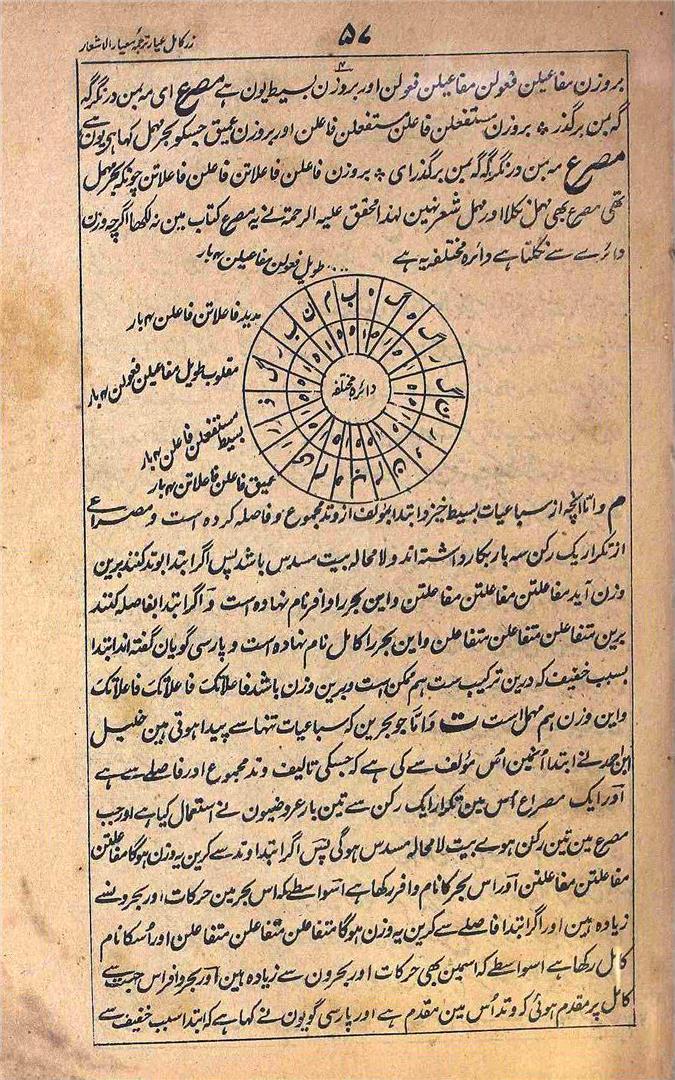 زرکامل عیار ترجمہ معیار الاشعار
۵۷
بروزن مفاعیلن فعولن مفاعیلن فعولن اور بروزن بسیط یون ہے مصرع ای مہ بمن در نگر گہ
گہ بمن برگذر ٭ بروزن مستفعلن فاعلن مستفعلن فاعلن اور بروزن عمیق جسکو بحر مہمل کہا ہی یون ہے
مصرع مہ بمن در نگر گہ گہ بمن برگذر ای ٭ بروزن فاعلن فاعلاتن فاعلن فاعلاتن چونکہ بحر مہمل
تھی مصرع بھی مہمل نکلا اور مہمل شعر نہین لہذا محقق علیہ الرحمۃ نے یہ مصرع کتاب مین نہ لکھا اگرچہ وزن
دائرے سے نکلتا ہے دائرہ مختلفہ یہ ہے
طویل فعولن مفاعیلن ۴ بار
مدید فاعلاتن فاعلن ۴ بار
مقلوب طویل مفاعیلن فعولن ۴ بار
بسیط مستفعلن فاعلن ۴ بار
عمیق فاعلن فاعلاتن ۴ بار
دائرہ مختلفہ
م واما آنچہ از سباعیات بسیط خیزد ابتدا بمؤلف از وتد مجموع و فاصلہ کردہ است و مصراعی
از تکرار یک رکن سہ بار بکار داشتہ اند و لا محالہ بیت مسدس باشد پس اگر ابتدا بوتد کنند برین
وزن آید مفاعلتن مفاعلتن مفاعلتن و این بحر را وافر نام نہادہ است و اگر ابتدا بفاصلہ کنند
برین متفاعلن متفاعلن متفاعلن و این بحر را کامل نام نہادہ است و پارسی گویان گفتہ اند ابتدا
بسبب خفیف کہ درین ترکیب ست ہم ممکن است و برین وزن باشد فاعلاتک فاعلاتک فاعلاتک
و این وزن ہم مہمل است ت واما جو بحرین کہ سباعیات تنہا سے پیدا ہوتی ہین خلیل
ابن احمد نے ابتدا انہین اس مؤلف سے کی ہے کہ جسکی تالیف وتد مجموع اور فاصلے سے ہے
اور ایک مصراع اس مین تکرار ایک رکن سے تین بار عروضیون نے استعمال کیا ہے اور جب
مصرع مین تین رکن ہوے بیت لا محالہ مسدس ہوگی پس اگر ابتدا وتد سے کرین یہ وزن ہوگا مفاعلتن
مفاعلتن مفاعلتن اور اس بحر کا نام وافر رکھا ہے اسواسطے کہ اس بحر مین حرکات اور بحرونسے
زیادہ ہین اور اگر ابتدا فاصلے سے کرین یہ وزن ہوگا متفاعلن متفاعلن متفاعلن اور اسکا نام
کامل رکھا ہے اسواسطے کہ اسمین بھی حرکات اور بحرون سے زیادہ ہین اور بحر وافر اس جہت سے
کامل پر مقدم ہوئی کہ وتد اس مین مقدم ہے اور پارسی گویون نے کہا ہے کہ ابتدا سبب خفیف سے